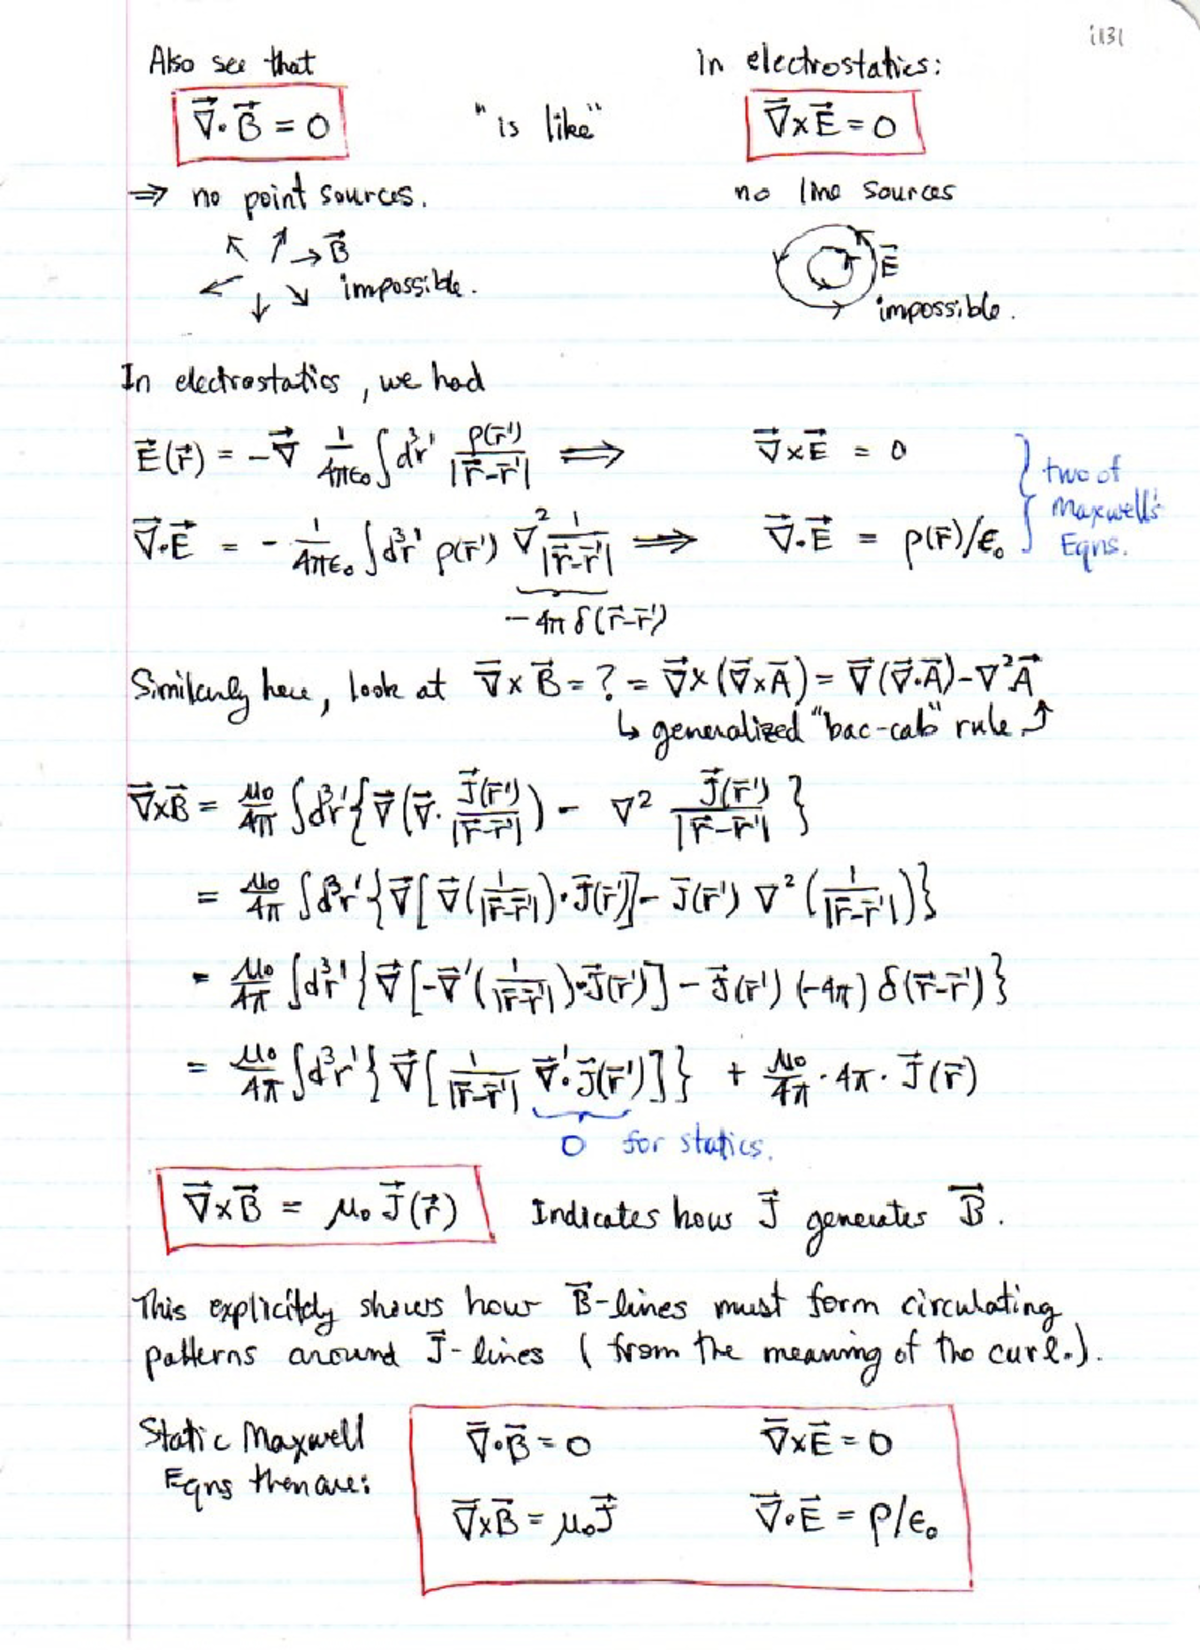 i131
Also see that
∇⃗·B⃗ = 0
"is like"
in electrostatics:
∇⃗×E⃗ = 0
⇒ no point sources.
no line sources
B⃗
impossible.
E⃗
impossible.
In electrostatics, we had
E⃗(r⃗) = -∇⃗ 1/4πε₀ ∫d³r' ρ(r⃗')/|r⃗-r⃗'| ⟹ ∇⃗×E⃗ = 0
∇⃗·E⃗ = - 1/4πε₀ ∫d³r' ρ(r⃗') ∇² 1/|r⃗-r⃗'| ⟹ ∇⃗·E⃗ = ρ(r⃗)/ε₀
} two of
Maxwell's
Eqns.
-4π δ(r⃗-r⃗')
Similarly here, look at ∇⃗×B⃗ = ? = ∇⃗×(∇⃗×A⃗) = ∇⃗(∇⃗·A⃗)-∇²A⃗
↳ generalized "bac-cab" rule ↗
∇⃗×B⃗ = μ₀/4π ∫d³r'{∇⃗(∇⃗· J⃗(r⃗')/|r⃗-r⃗'|) - ∇² J⃗(r⃗')/|r⃗-r⃗'|}
= μ₀/4π ∫d³r'{∇⃗[∇⃗(1/|r⃗-r⃗'|)·J⃗(r⃗')] - J⃗(r⃗') ∇²(1/|r⃗-r⃗'|)}
= μ₀/4π ∫d³r'{∇⃗[-∇⃗'(1/|r⃗-r⃗'|)·J⃗(r⃗')] - J⃗(r⃗') (-4π) δ(r⃗-r⃗')}
= μ₀/4π ∫d³r'{∇⃗[1/|r⃗-r⃗'| ∇⃗'·J⃗(r⃗')]} + μ₀/4π · 4π · J⃗(r⃗)
0 for statics.
∇⃗×B⃗ = μ₀ J⃗(r⃗)
Indicates how J⃗ generates B⃗.
This explicitly shows how B⃗-lines must form circulating
patterns around J⃗-lines (from the meaning of the curl.).
Static Maxwell
Eqns then are:
∇⃗·B⃗ = 0 ∇⃗×E⃗ = 0
∇⃗×B⃗ = μ₀J⃗ ∇⃗·E⃗ = ρ/ε₀